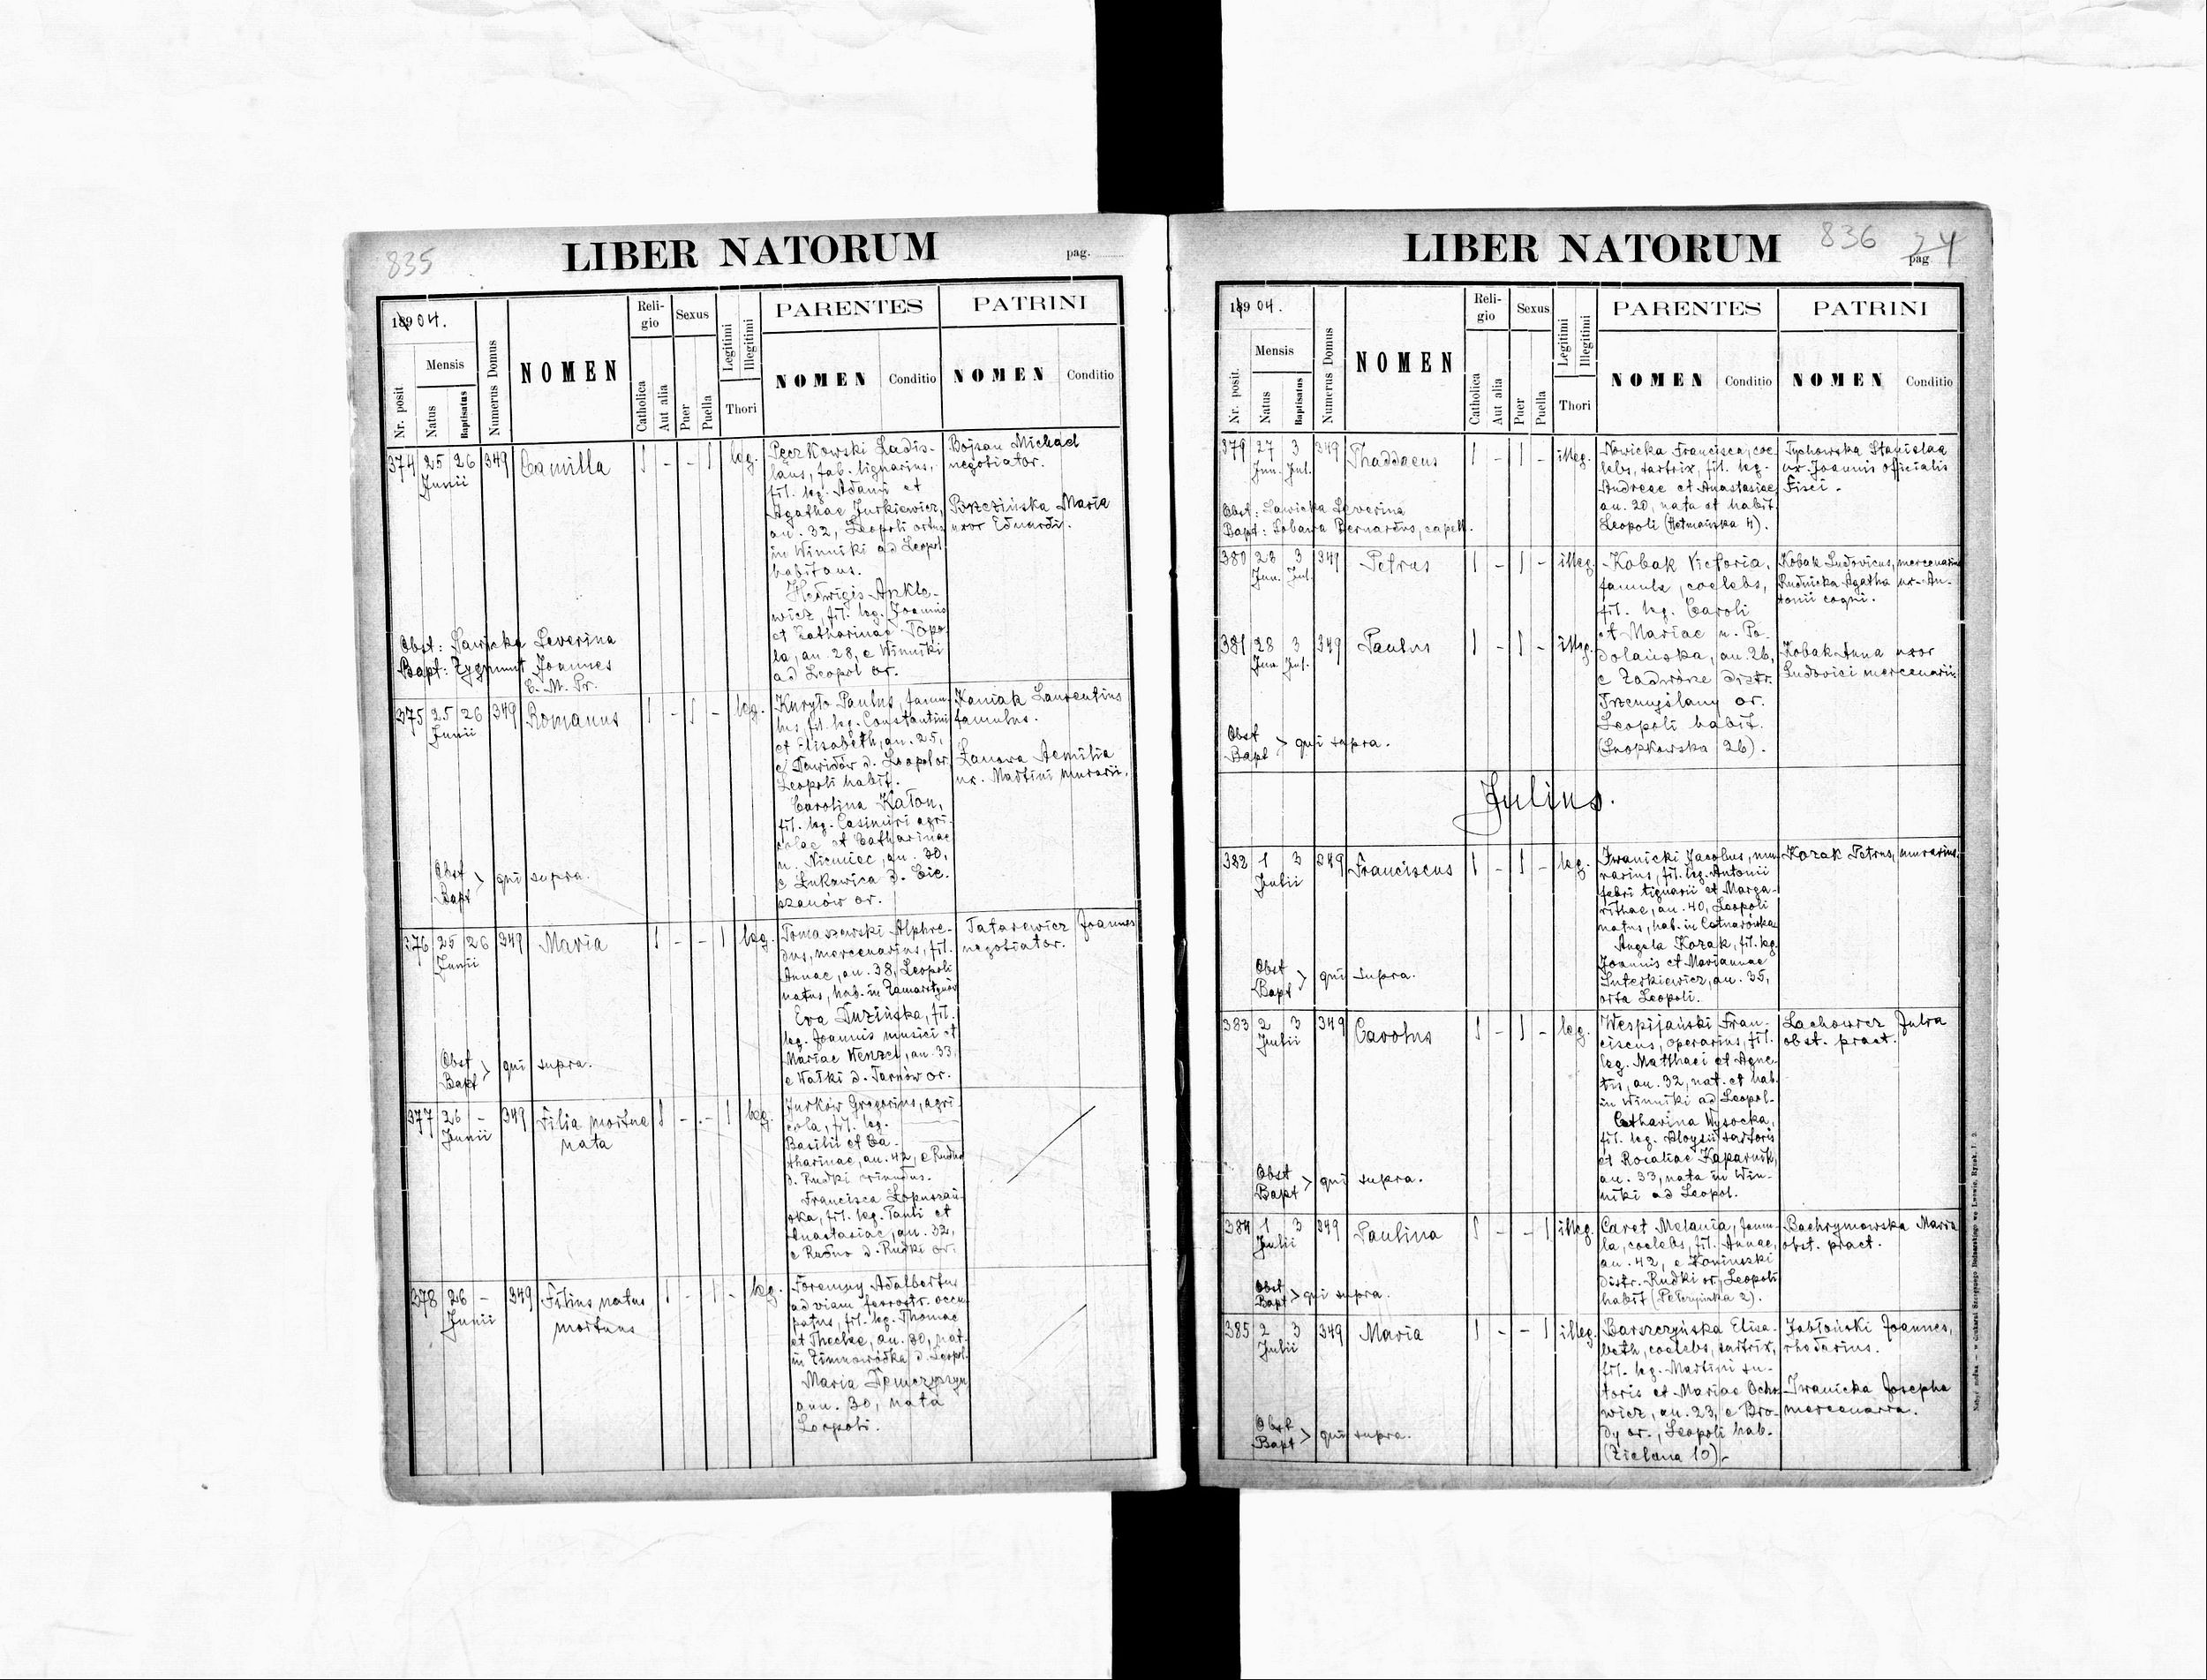 835
LIBER NATORUM
pag.
1904.
Nr. posit
Mensis
Natus
Baptisatus
Numerus Domus
NOMEN
Religio
Catholica
Aut alia
Sexus
Puer
Puella
Legitimi
Illegitimi
Thori
PARENTES
NOMEN
Conditio
PATRINI
NOMEN
Conditio
374 25 26 349 Camilla 1 - - 1 leg.
Junii
Pęczkowski Ladis-
laus, fab. lignarius,
fil. leg. Adami et
Agathae Jurkiewicz,
an. 32, Leopoli ortus
in Winniki ad Leopol
habitans.
Hedwigis Ankle-
wicz, fil. leg. Joannis
et Catharinae Topo-
la, an. 28, e Winniki
ad Leopol or.
Bojsan Michael
negotiator.
Brzezińska Maria
uxor Eduardi.
Obst: Sawicka Severina
Bapt: Zygmunt Joannes
C. M. Pr.
375 25 26 349 Romanus 1 - 1 - leg.
Junii
Kuryło Paulus, famu-
lus, fil. leg. Constantini
et Elisabeth, an. 25,
e Dawidów d. Leopol or.
Leopoli habit.
Carolina Katon,
fil. leg. Casimiri agri-
colae et Catharinae
n. Niemiec, an. 30,
e Łukawica d. Cie-
szanów or.
Kaniak Laurentius
famulus.
Łanowa Aemilia
ux. Martini murarii.
Obst
Bapt > qui supra.
376 25 26 349 Maria 1 - - 1 leg.
Junii
Tomaszewski Alphre-
dus, mercenarius, fil.
Annae, an. 38, Leopoli
natus, hab. in Zamarstynów
Eva Duzińska, fil.
leg. Joannis musici et
Mariae Wenzel, an. 33,
e Wałki d. Tarnów or.
Tatarewicz Joannes
negotiator.
Obst
Bapt > qui supra.
377 26 - 349 Filia mortua 1 - - 1 leg.
Junii nata
Jurków Gregorius, agri-
cola, fil. leg.
Basilii et Ca-
tharinae, an. 42, e Rudno
d. Rudki oriundus.
Francisca Łopuszań-
ska, fil. leg. Pauli et
Anastasiae, an. 32,
e Rudno d. Rudki or.
378 26 - 349 Filius natus 1 - 1 - leg.
Junii mortuus
Foremny Adalbertus
ad viam ferrostr. occu-
patus, fil. leg. Thomae
et Theclae, an. 30, nat.
in Zimnawódka d. Leopol.
Maria Demczyszyn
ann. 30, nata
Leopoli.
836 24
LIBER NATORUM
pag
1904.
Nr. posit.
Mensis
Natus
Baptisatus
Numerus Domus
NOMEN
Religio
Catholica
Aut alia
Sexus
Puer
Puella
Legitimi
Illegitimi
Thori
PARENTES
NOMEN
Conditio
PATRINI
NOMEN
Conditio
379 27 3 349 Thaddaeus 1 - 1 - illeg.
Jun. Jul.
Nowicka Francisca, coe-
lebs, sartrix, fil. leg.
Andreae et Anastasiae,
an. 20, nata et habit.
Leopoli (Hetmańska 4).
Tychowska Stanislaa
ux. Joannis officialis
Fisci.
Obst: Sawicka Severina
Bapt: Sobawa Bernardus, capell.
380 28 3 349 Petrus 1 - 1 - illeg.
Jun. Jul.
Kobak Victoria,
famula, coelebs,
fil. leg. Caroli
et Mariae n. Po-
dolańska, an. 26,
e Zadwórze distr.
Przemyślany or.
Leopoli habit.
(Snopkowska 26).
Kobak Ludovicus, mercenarius
Rudnicka Agatha ux. An-
tonii cogni.
381 28 3 349 Paulus 1 - 1 - illeg.
Jun. Jul.
Kobak Anna uxor
Ludovici mercenarii.
Obst
Bapt > qui supra.
Julius.
382 1 3 349 Franciscus 1 - 1 - leg.
Julii
Iwanicki Jacobus, mu-
rarius, fil. leg. Antonii
fabri tignarii et Marga-
rithae, an. 40, Leopoli
natus, hab. in Cetnarówka
Angela Kozak, fil. leg.
Joannis et Mariannae
Suterkiewicz, an. 35,
orta Leopoli.
Kozak Petrus, murarius.
Obst
Bapt > qui supra.
383 2 3 349 Carolus 1 - 1 - leg.
Julii
Wespijański Fran-
ciscus, operarius, fil.
leg. Matthaei et Agne-
tis, an. 32, nat. et hab.
in Winniki ad Leopol.
Catharina Wysocka,
fil. leg. Aloysii sartoris
et Rosaliae Kaparnik,
an. 33, nata in Win-
niki ad Leopol.
Lachowicz Julia
obst. pract.
Obst
Bapt > qui supra.
384 1 3 349 Paulina 1 - - 1 illeg.
Julii
Caret Melania, famu-
la, coelebs, fil. Annae,
an. 42, e Koniuszki
distr. Rudki or. Leopoli
habit
Bachrynowska Maria
obst. pract.
Obst
Bapt > qui supra.
385 2 3 349 Maria 1 - - 1 illeg.
Julii
Barszczyńska Elisa-
beth, coelebs, sartrix,
fil. leg. Martini su-
toris et Mariae Ocho-
wicz, an. 23, e Bro-
dy or., Leopoli hab.
(Zielona 10).
Jabłoński Joannes,
rhedarius.
Iwanicka Josepha
mercenaria.
Obst
Bapt > qui supra.